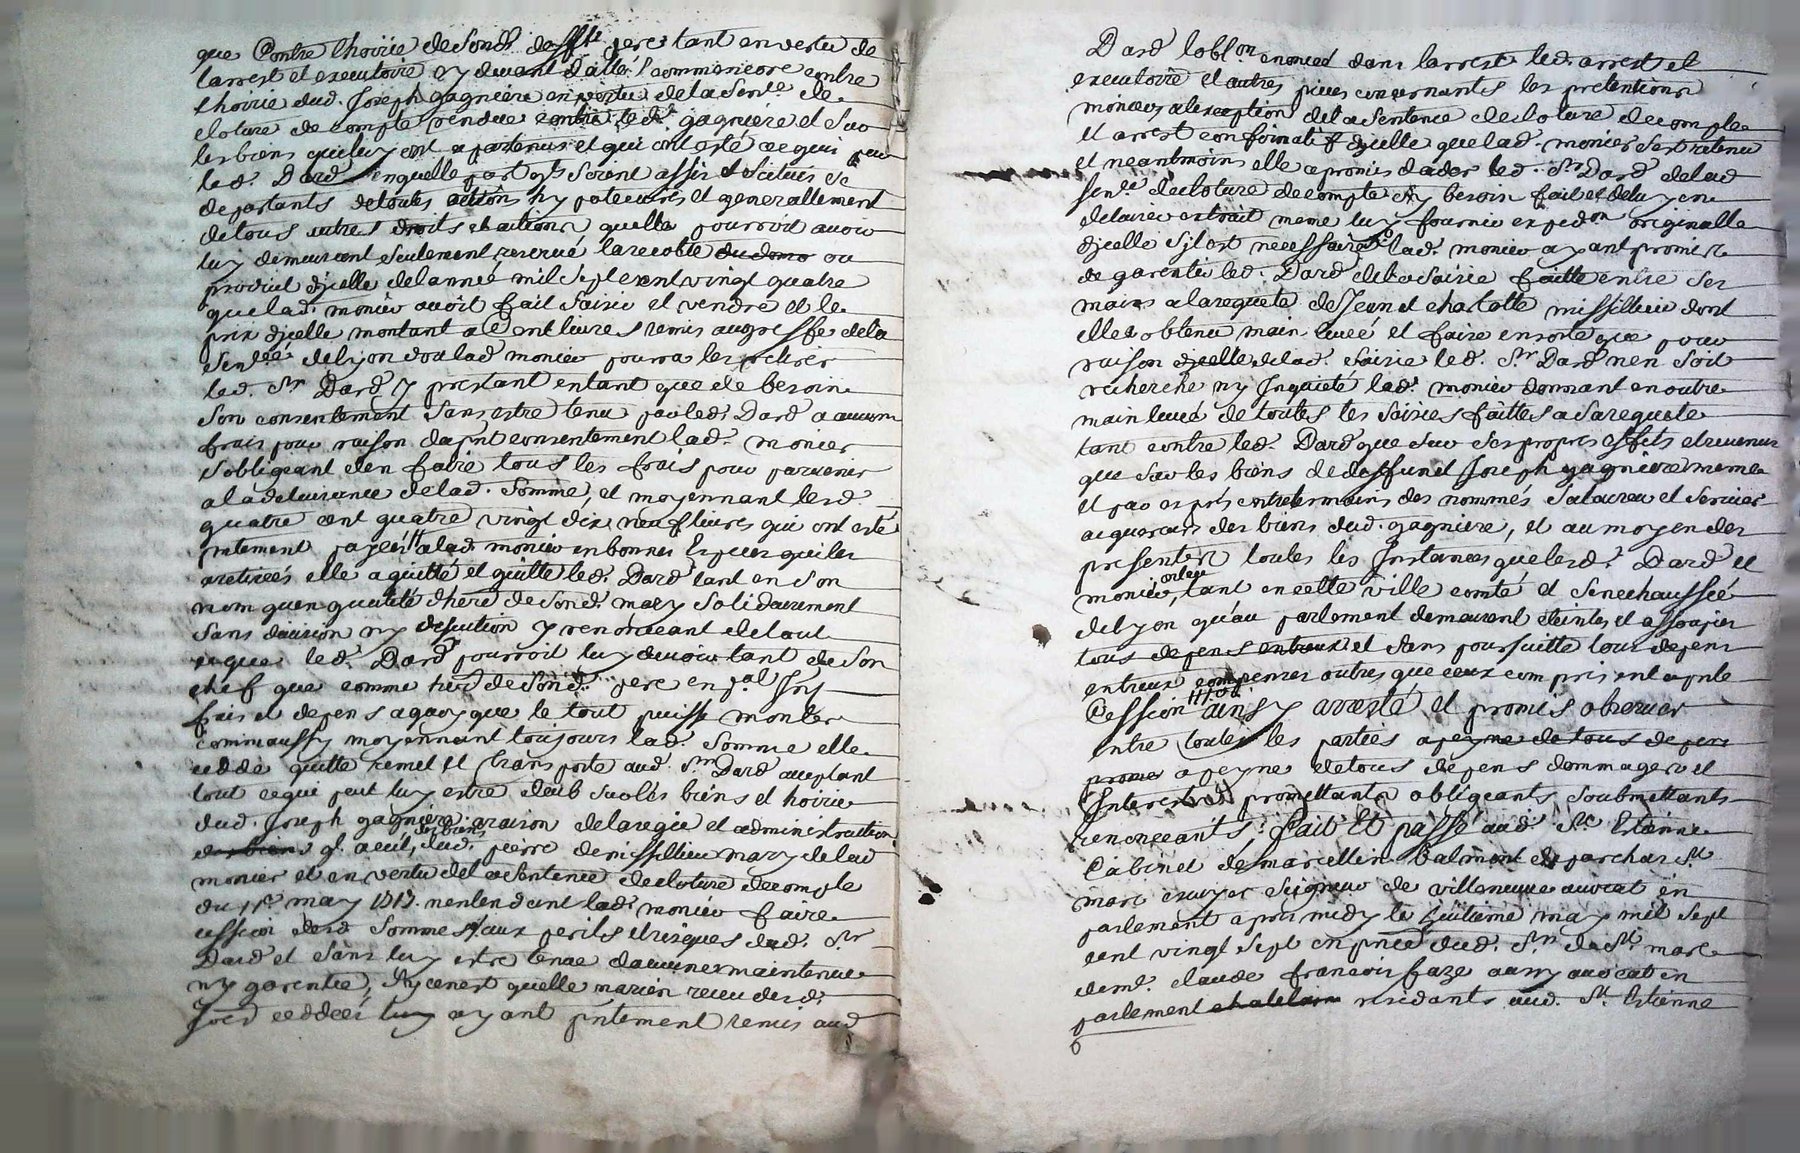 que Contre lhoirie de Sond. defft pere tant en vertu de
larrest et executoire cy devant datté commencere contre
lhoirie dud. Joseph gagniere en vertu de la Sente. de
cloture de compte rendue contre led. gagniere et Sur
les biens qui luy ont apartenus et qui ont esté acquis par
led. Dard en quelle part qls Soient assis et Scitues Se
departants de toutes actions hypotecaires et generallement
de tous autres droits et actions quelle pourroit avoir
luy demeurant Seulement reservé la recolte ou
produit dicelle de lannée mil Sept cent vingt quatre
que lad. monier avoit fait Saisir et vendre et le
prix dicelle montant a Cent livres remis au greffe de la
Senéée de lyon dou lad monier pourra les retirer
led. Sr Dard y prestant entant que de besoin
Son consentement Sans estre tenu par led. Dard a aucuns
frais pour raison du pnt consentement lad. monier
Sobligeant den faire tous les frais pour parvenir
a la delivrance de lad. Somme, et moyennant lesd.
quatre cent quatre vingt dix neuf livres qui ont esté
pntement payées a lad. monier en bonnes Especes quelle
a retirées elle a quitté et quitte led. Dard tant en Son
nom quen qualité dhere. de Sond. mary Solidairement
Sans division ny discution y renonceant de tout
ce que led. Dard pourroit luy devoir tant de Son
chef que comme here. de Sond. pere en pal Jnt
frais et depens a quoy que le tout puisse monter
comm'aussy moyennant toujours lad. Somme elle
cedde quitte remet et transporte aud. Sr. Dard aceptant
tout ce qui peut luy estre deub Sur les biens et hoirie
dud. Joseph gagniere a raison de la regie et administration
des biens ql. a eüe, dud. pierre de missillieu mary de lad
monier et en vertu de la Sentence de cloture de compte
du 11e may 1717. nentendant lad. monier faire
cession desd Sommes qaux perils et risques dud. Sr
Dard et Sans luy estre tenue daucunes maintenue
ny garentie, Sy ce nest quelle na rien receu desd.
Joes ceddées luy ayant pntement remis aud
Dard loblon enoncée dans larrest led. arrest et
executoire et autres pieces concernants les pretentions
monier a lexception de la Sentence de cloture de compte
et arrest confirmatif dicelle que lad. monier Sest retenu
et neantmoins elle a promis daider led. Sr Dard de lad
Sente. de cloture de compte Sy besoin fait et de luy en
delaisser extrait meme luy fournir expedon originalle
dicelle Sil est necessaire lad. monier ayant promis
de garentir led. Dard de la Saisie faitte entre Ses
mains a la requete de Jean et charlotte missillieu dont
elle obtenu main levée et faire en sorte que pour
raison dicelle de lad. Saisie led. Sr Dard nen Soit
recherché ny Jnquieté lad. monier donnant en outre
main levée de toutes les Saisies faittes a Sa requete
tant contre led. Dard que Sur Ses propres effets et revenus
que Sur les biens de deffunct Joseph gagniere meme
et par exprés entre les mains des nommés Salavreu et Servier
aquereurs des biens dud. gagniere, et au moyen des
presentes toutes les Jnstances que lesd. Dard et
monier, tant en cette ville comté et Senechaussée
de lyon qu'au parlement demeurent eteintes et assoupies
tous depens entreux et Sans poursuitte tous depens
entreux compenses outres que ceux compris en la pnte
Cession ainsy arresté et promis observer
entre toutes les parties a peyne de tous depens
a peyne de tous depens dommages et
Jnterests promettants obligeants Soubmettants
renonceants. Fait et passé aud. St. Etienne
Cabinet de marcellin Balmont de parchas St
marc ecuyer Seigneur de villeneuve avocat en
parlement apres midy le huitieme may mil Sept
cent vingt Sept en pnce dud. Sr. de St. marc
de me. claude francois faze aussy avocat en
parlement residants aud. St Etienne